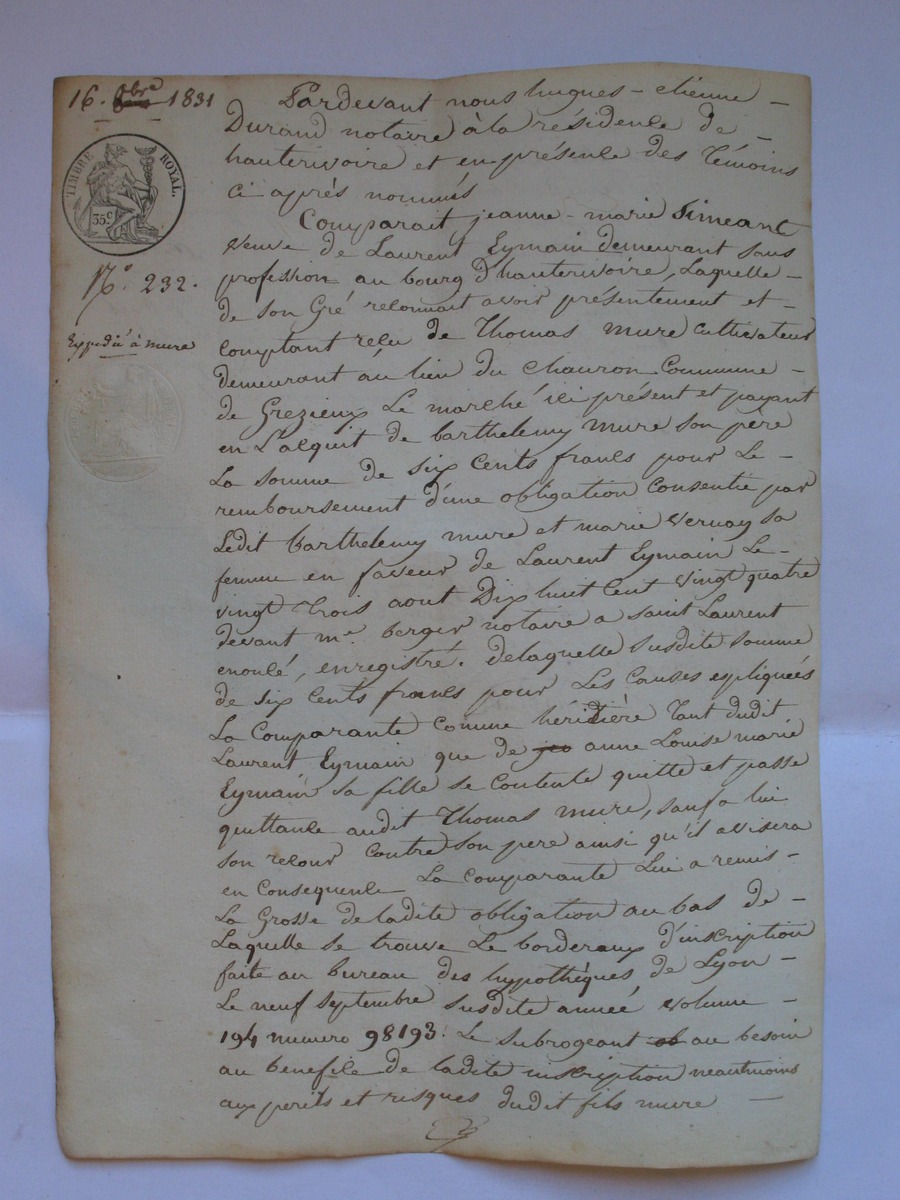 16. 8bre 1831
TIMBRE ROYAL.
35.c
N.o 232.
Expédié à mure
Pardevant nous hugues - etienne -
Durand notaire à la résidence de -
hauterivoire et en présence des témoins
ci après nommés
Comparait jeanne - marie Simeant
veuve de Laurent Eymain demeurant sans
profession au bourg d'hauterivoire, Laquelle -
de son Gré reconnait avoir présentement et -
comptant reçu de Thomas mure cultivateur
demeurant au lieu du chauron Commune -
de Grezieux Le marché ici présent et payant
en L'acquit de barthelemy mure son père
La somme de six cents francs pour Le -
remboursement d'une obligation consentie par
Ledit barthelemy mure et marie vernay sa
femme en faveur de Laurent Eymain Le -
vingt trois aout Dix huit cent vingt quatre
devant me. berger notaire a saint Laurent
enoulé, enregistré. delaquelle susdite somme
de six cents francs pour Les causes expliquées
La Comparante comme héridtière tant dudit
Laurent Eymain que de anne Louise marie
Eymain sa fille se contente quitte et passe
quittance audit Thomas mure, sauf a lui
son recour contre son pere ainsi qu'il avisera
en consequence La comparante Lui a remis -
La Grosse de ladite obligation au bas de -
Laquelle se trouve Le borderaux d'inscription
faite au bureau des hypothèques de Lyon -
Le neuf septembre susdite année volume -
194 numero 98193. Le subrogeant au besoin
au benefice de ladite inscription neantmoins
aux perils et risques dudit fils mure -